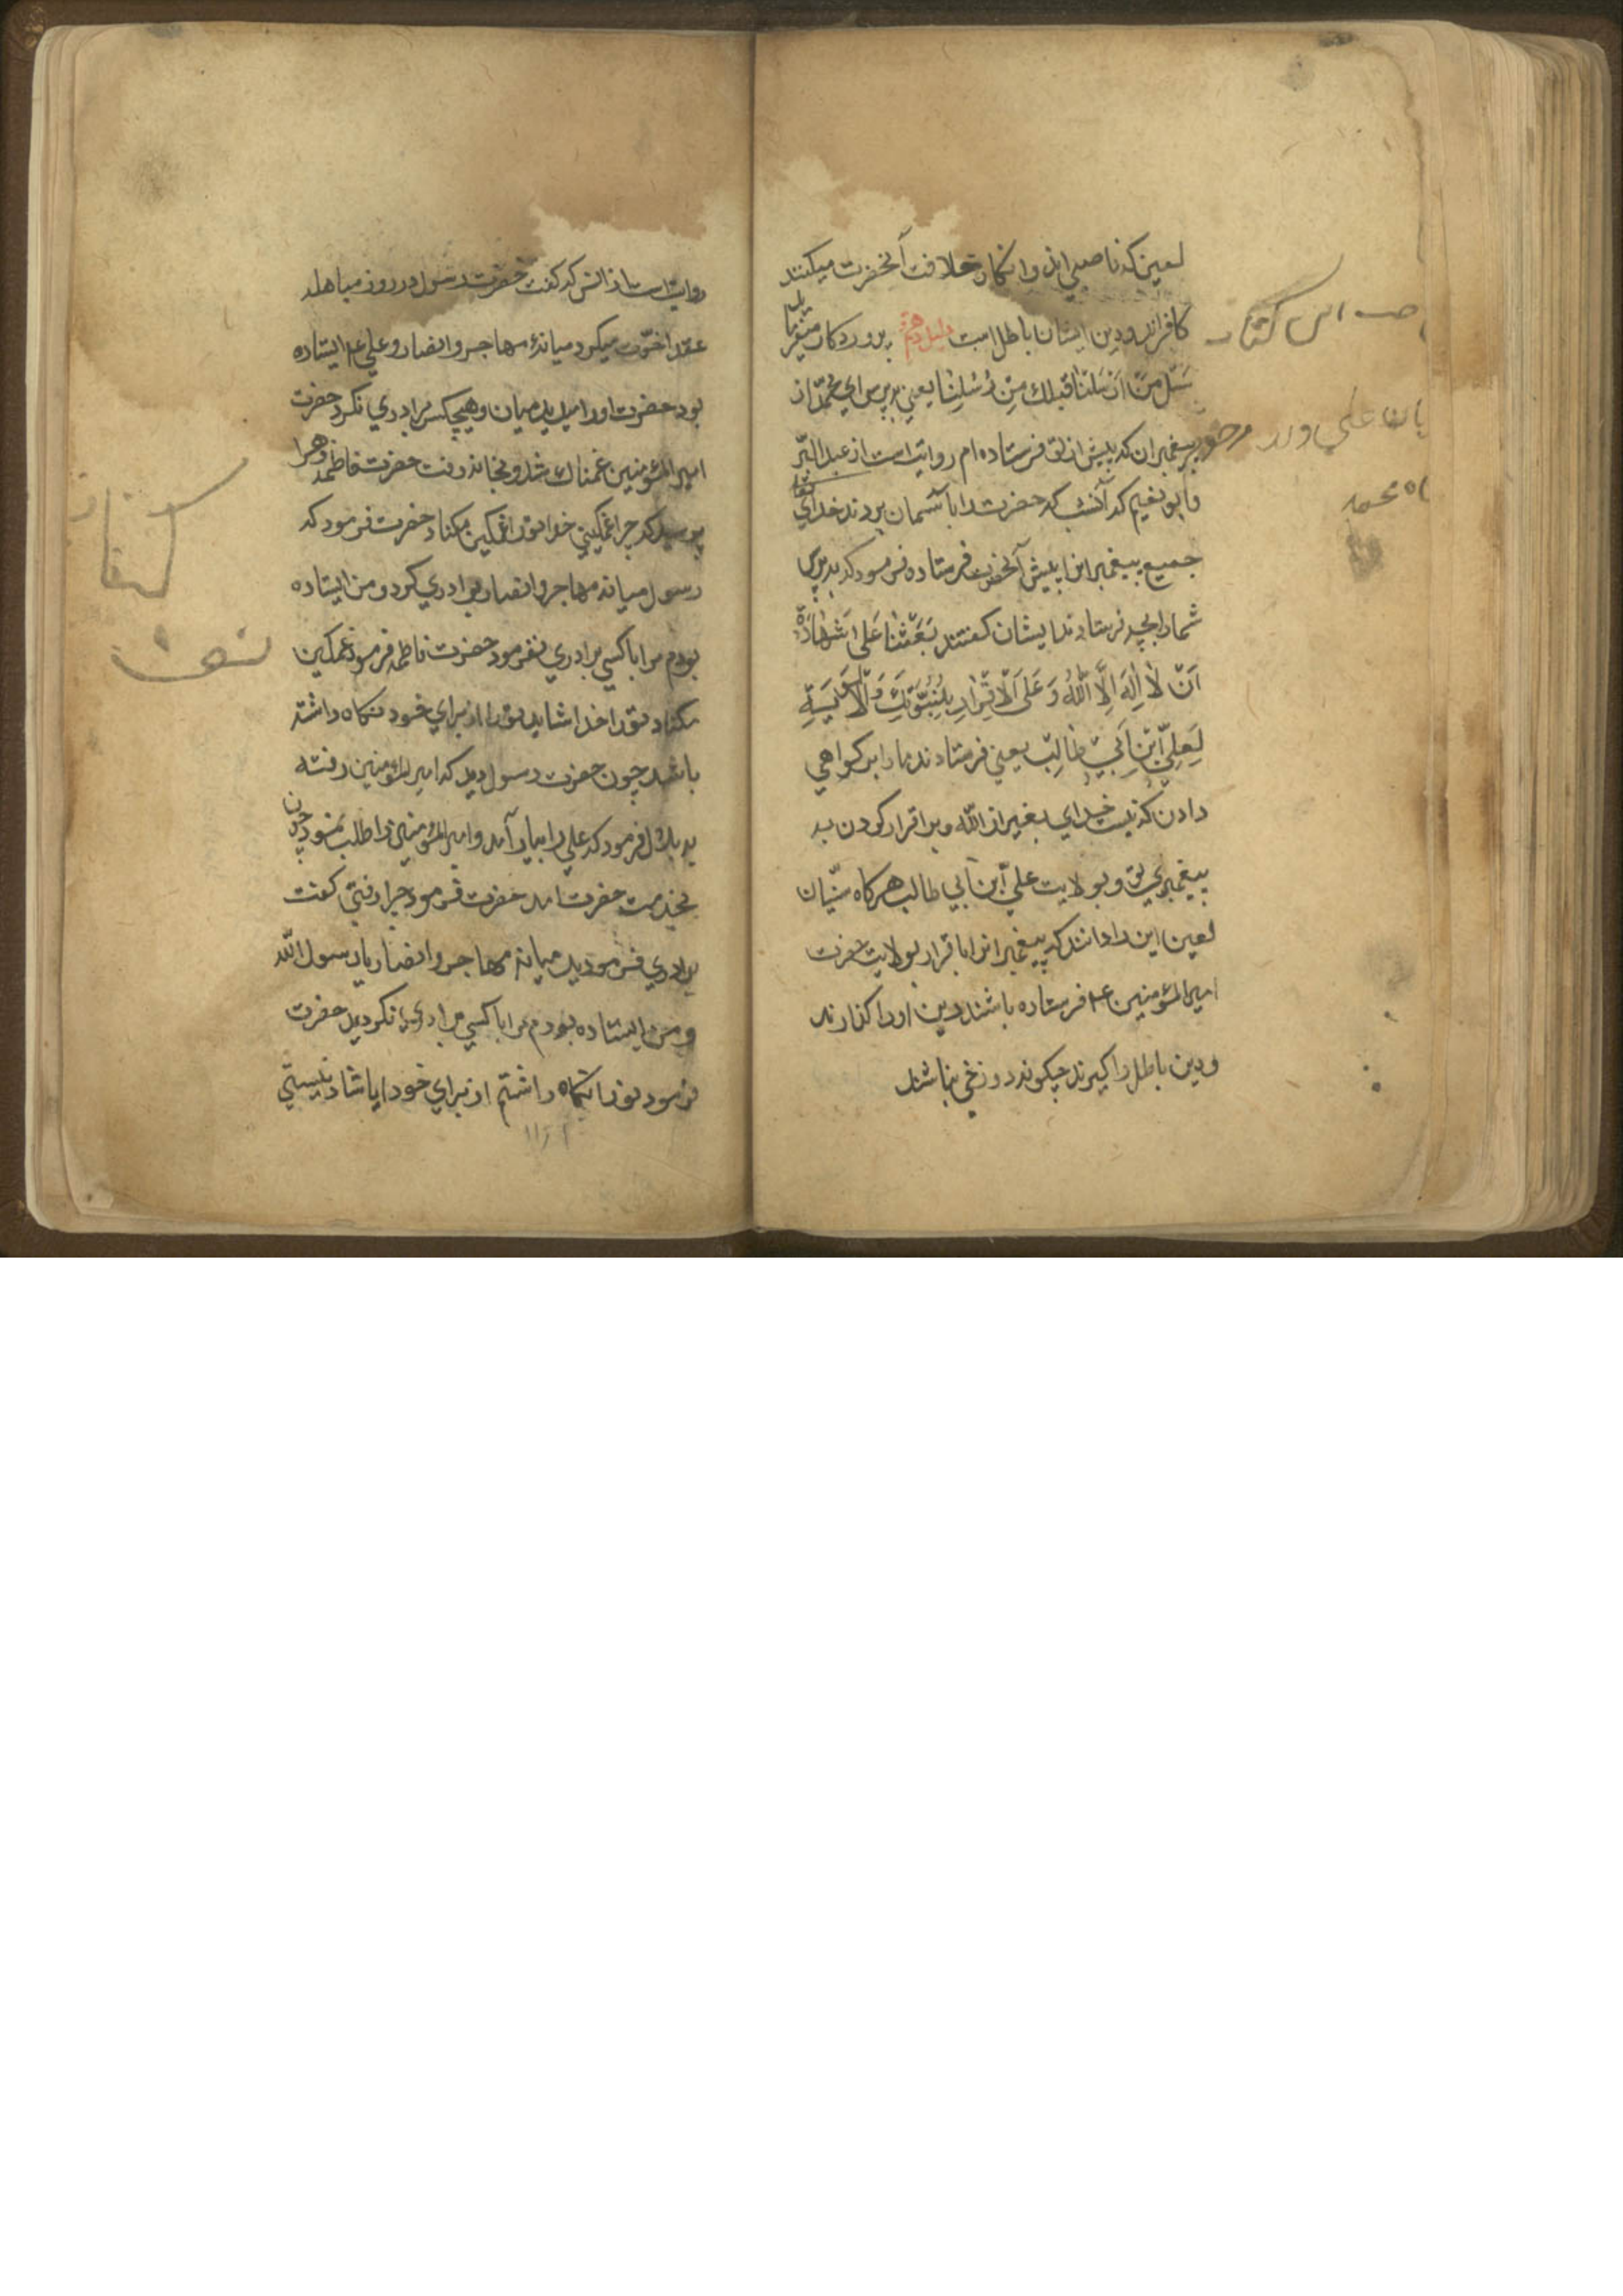 لعین که ناصبی اند و انکار خلافت آنحضرت میکنند
کافرانند و دین ایشان باطل است دلیل پروردکار میفرماید
سَئَل مَنْ اَرْسَلْنٰا قَبلك مِنْ رُسُلِنٰا یعنی بپرس ای محمّد از
پیغمبران که پیش از تو فرستاده ام روایت است از عبد البَرّ
و ابو نعیم که آنشب که حضرت را باآسمان بردند خدای تعا
جمیع پیغمبرانرا پیش آنحضرت فرستاده فرمود که بپرس
شما را بچه فرستادند ایشان کفتند بَعَثَنٰا عَلی شَهٰادَةِ
اَنْ لٰا اِلٰهَ اِلَّا اللّٰهُ وَ عَلَی الْاِقْرٰارِ بِنُبُوَّتِكَ وَ الْوَلٰایَةِ
لِعَلِیِّ ابْنِ اَبِیْ طٰالِبْ یعنی فرستادند ما را بر کواهی
دادن که نیست خدای بغیر از اللّه و بر اقرار کردن به
پیغمبری تو و بولایت علیّ ابن ابی طالب هرکاه سنّیان
لعین این را دانند که پیغمبرانرا باقرار بولایت حضرت
امیر المؤمنین ع فرستاده باشند دین او را کذارند
و دین باطل را کیرند چکونه دوزخی نباشند
این کتاب
علی
محمد
روایت است از انس که کفت حضرت رسول در روز مباهله
عقد اخوّت میکرد میانهٔ مهاجر و انصار و علی ع ایستاده
بود حضرت او را میدید میان و هیچکس برادری نکرد حضرت
امیر المؤمنین غمناك شد و بخانه رفت حضرت فاطمه زهرا
پرسید که چرا غمکینی خدا تو را غمکین مکناد حضرت فرمود که
رسول میانه مهاجر و انصار برادری کرد و من ایستاده
بودم مرا با کسی برادری نفرمود حضرت فاطمه فرمود غمکین
مکناد تو را خدا شاید تو را از برای خود نکاه داشته
باشد چون حضرت رسول دید که امیر المؤمنین رفته
به بلال فرمود که علی را بیار آمد و امیر المؤمنین را طلب نمود چون
بخدمت حضرت امد حضرت فرمود چرا رفتی کفت
برادری فرمودید میانه مهاجر و انصار یا رسول اللّه
و من ایستاده بودم مرا با کسی برادری نکردید حضرت
فرمود تو را نکاه داشتم از برای خود ایا شاد نیستی
کتاب